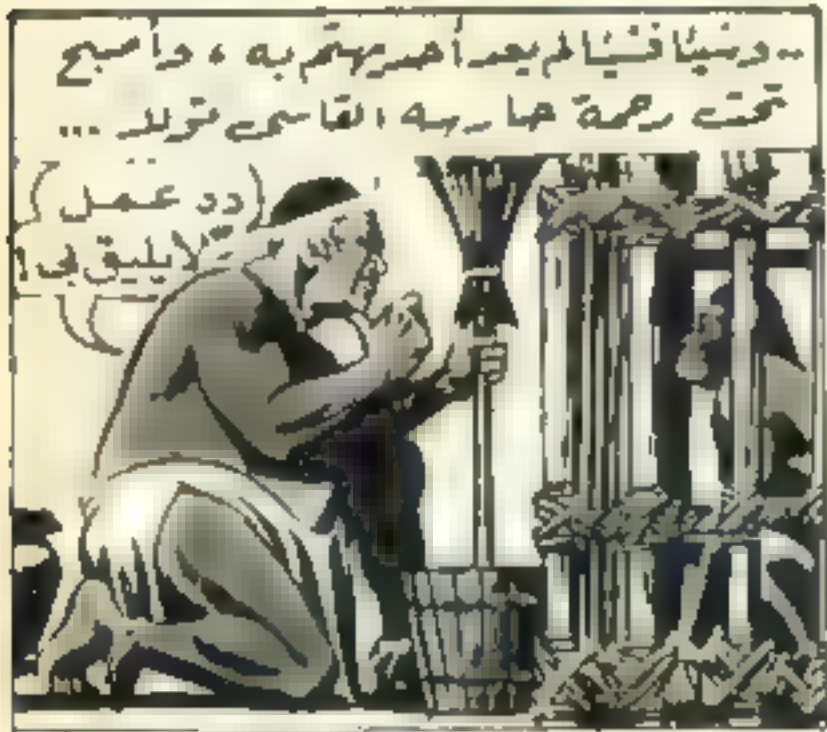 .. وشيئا فشيئا لم يعد أحد يهتم به ، وأصبح
تحت رحمة حارسه القاسى توللر ...
(( عمل
لايليق بى !